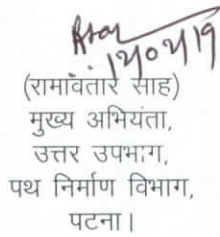 12/02/19
(रामावतार साह)
मुख्य अभियंता,
उत्तर उपभाग,
पथ निर्माण विभाग,
पटना।